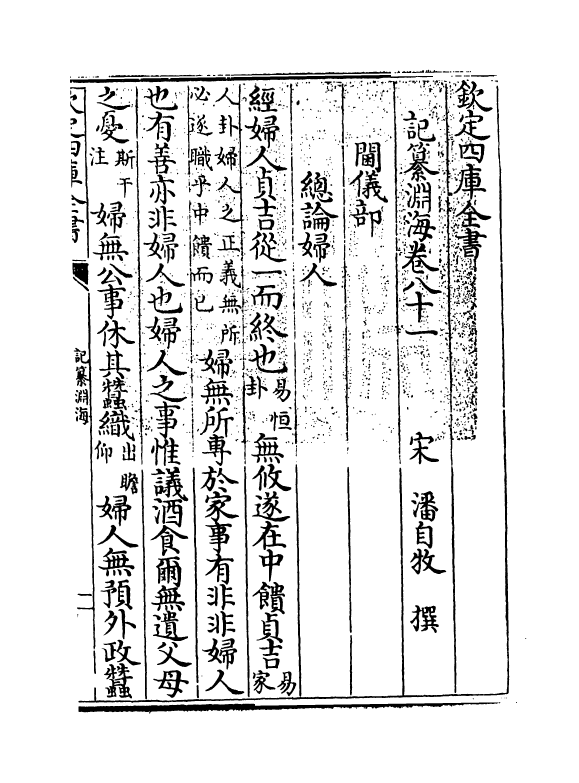 欽定四庫全書
記纂淵海卷八十一
宋 潘自牧 撰
閫儀部
總論婦人
經婦人貞吉從一而終也易恒卦無攸遂在中饋貞吉易家
人卦婦人之正義無所必遂職乎中饋而已婦無所專於家事有非非婦人
也有善亦非婦人也婦人之事惟議酒食爾無遺父母
之憂斯干注婦無公事休其蠶織出瞻仰婦人無預外政蠶
欽定四庫全書
記纂淵海
一